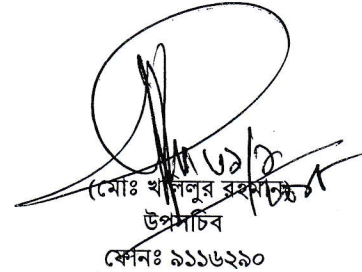 (মোঃ খলিলুর রহমান)
উপসচিব
ফোনঃ ৯১১৬২৯০